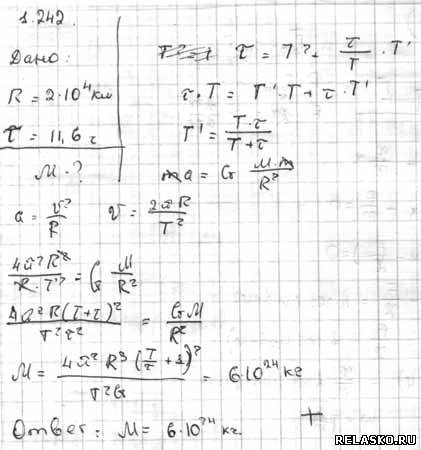 1.242.
Дано:
R = 2·10⁴ км
τ = 11,6 ч
M - ?
τ = T' + τ/T · T'
τ·T = T'·T + τ·T'
T' = T·τ / T+τ
ma = G M·m / R²
a = v²/R    v = 2πR / T²
4π²R² / R·T'² = G M/R²
4π²R(T+τ)² / T²τ² = GM / R²
M = 4π²R³(T/τ + 1)² / T²G = 6·10²⁴ кг
Ответ: M = 6·10²⁴ кг.
+
RELASKO.RU